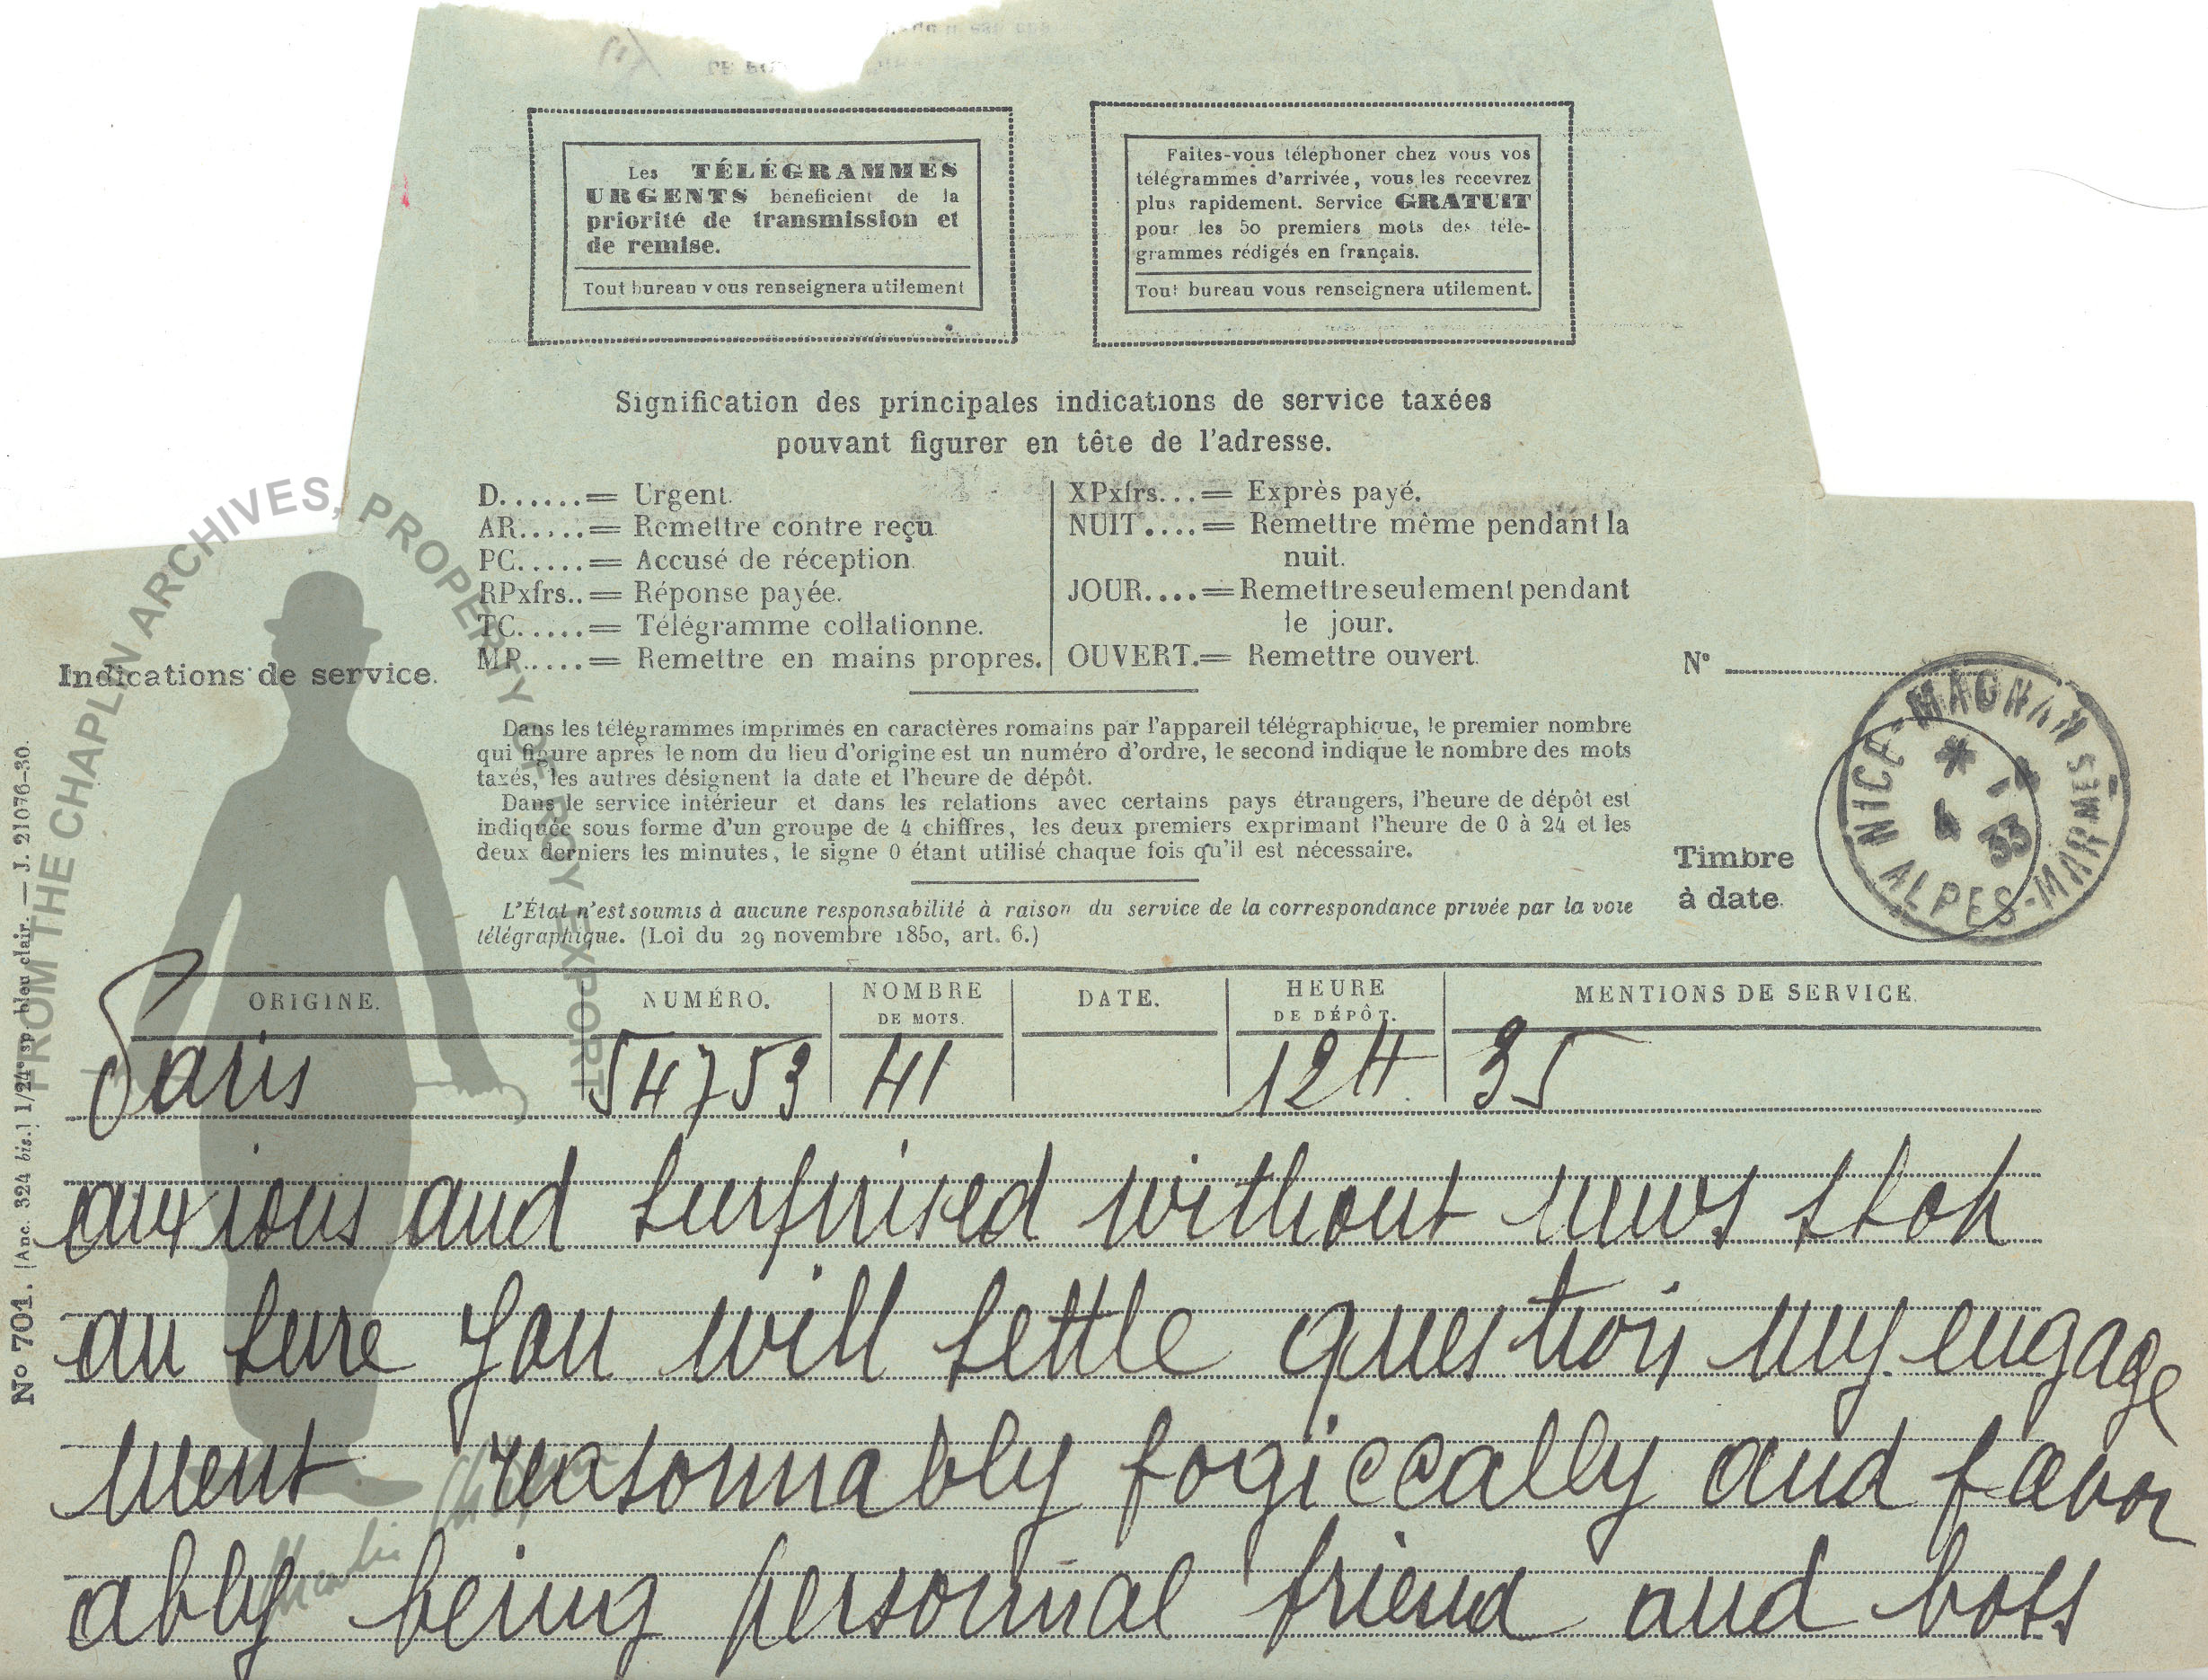 Les TÉLÉGRAMMES
URGENTS bénéficient de la
priorité de transmission et
de remise.
Tout bureau vous renseignera utilement
Faites-vous téléphoner chez vous vos
télégrammes d'arrivée, vous les recevrez
plus rapidement. Service GRATUIT
pour les 50 premiers mots des télé-
grammes rédigés en français.
Tout bureau vous renseignera utilement.
Signification des principales indications de service taxées
pouvant figurer en tête de l'adresse.
D......= Urgent.
AR.....= Remettre contre reçu.
PC.....= Accusé de réception.
RPxfrs..= Réponse payée.
TC.....= Télégramme collationné.
MP.....= Remettre en mains propres.
XPxfrs...= Exprès payé.
NUIT....= Remettre même pendant la
nuit.
JOUR....= Remettre seulement pendant
le jour.
OUVERT.= Remettre ouvert.
Indications de service.
N°
Dans les télégrammes imprimés en caractères romains par l'appareil télégraphique, le premier nombre
qui figure après le nom du lieu d'origine est un numéro d'ordre, le second indique le nombre des mots
taxés, les autres désignent la date et l'heure de dépôt.
Dans le service intérieur et dans les relations avec certains pays étrangers, l'heure de dépôt est
indiquée sous forme d'un groupe de 4 chiffres, les deux premiers exprimant l'heure de 0 à 24 et les
deux derniers les minutes, le signe 0 étant utilisé chaque fois qu'il est nécessaire.
L'État n'est soumis à aucune responsabilité à raison du service de la correspondance privée par la voie
télégraphique. (Loi du 29 novembre 1850, art. 6.)
Timbre
à date.
NICE-MAGNAN
ALPES-MARMES
4 33
N° 701. [Anc. 324 bis.] 1/24e sp bleu clair. — J. 21076-30.
FROM THE CHAPLIN ARCHIVES, PROPERTY OF ROY EXPORT
ORIGINE. NUMÉRO. NOMBRE DE MOTS. DATE. HEURE DE DÉPÔT. MENTIONS DE SERVICE.
Paris 54753 41 12H 35
anxious and surprised without news stop
am sure you will settle question my engage
ment reasonnably logiccally and favor
ably being personnal friend and boss
Charlie Chaplin